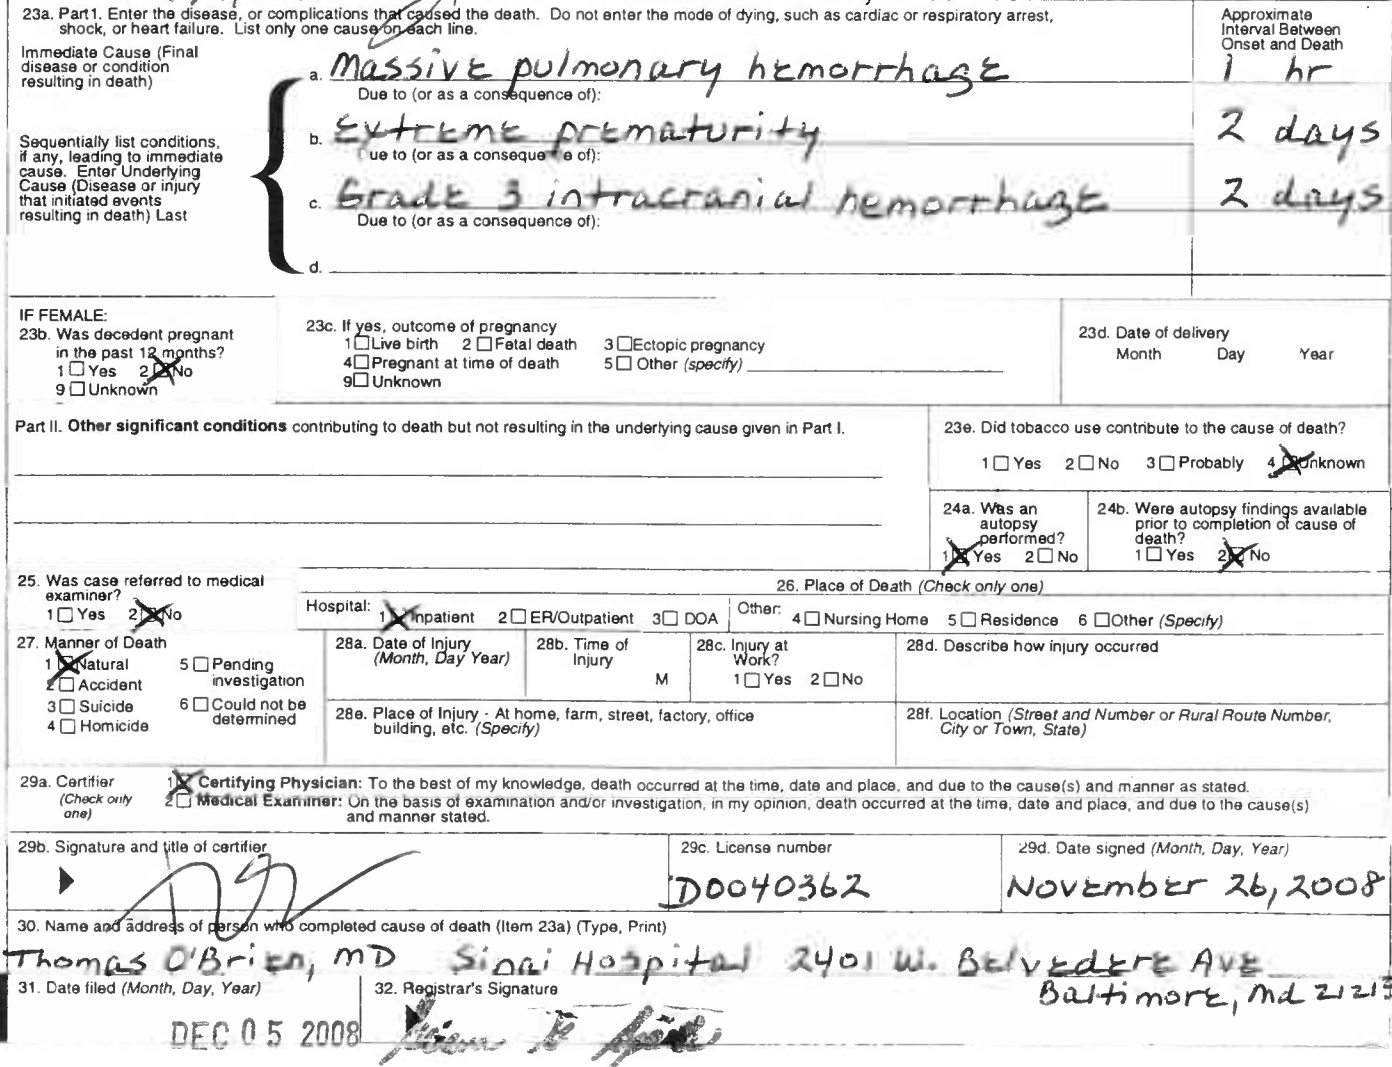 23a. Part1. Enter the disease, or complications that caused the death. Do not enter the mode of dying, such as cardiac or respiratory arrest,
shock, or heart failure. List only one cause on each line.
Approximate
Interval Between
Onset and Death
Immediate Cause (Final
disease or condition
resulting in death)
a. Massive pulmonary hemorrhage 1 hr
Due to (or as a consequence of):
Sequentially list conditions,
if any, leading to immediate
cause. Enter Underlying
Cause (Disease or injury
that initiated events
resulting in death) Last
b. Extreme prematurity 2 days
ue to (or as a conseque e of):
c. Grade 3 intracranial hemorrhage 2 days
Due to (or as a consequence of):
d.
IF FEMALE:
23b. Was decedent pregnant
in the past 12 months?
1 Yes 2 No
9 Unknown
23c. If yes, outcome of pregnancy
1 Live birth 2 Fetal death 3 Ectopic pregnancy
4 Pregnant at time of death 5 Other (specify)
9 Unknown
23d. Date of delivery
Month Day Year
Part II. Other significant conditions contributing to death but not resulting in the underlying cause given in Part I.
23e. Did tobacco use contribute to the cause of death?
1 Yes 2 No 3 Probably 4 Unknown
24a. Was an
autopsy
performed?
1 Yes 2 No
24b. Were autopsy findings available
prior to completion of cause of
death?
1 Yes 2 No
25. Was case referred to medical
examiner?
1 Yes 2 No
26. Place of Death (Check only one)
Hospital: 1 Inpatient 2 ER/Outpatient 3 DOA Other: 4 Nursing Home 5 Residence 6 Other (Specify)
27. Manner of Death
1 Natural 5 Pending
investigation
2 Accident
3 Suicide 6 Could not be
determined
4 Homicide
28a. Date of Injury
(Month, Day Year)
28b. Time of
Injury
M
28c. Injury at
Work?
1 Yes 2 No
28d. Describe how injury occurred
28e. Place of Injury - At home, farm, street, factory, office
building, etc. (Specify)
28f. Location (Street and Number or Rural Route Number,
City or Town, State)
29a. Certifier
(Check only
one)
1 Certifying Physician: To the best of my knowledge, death occurred at the time, date and place, and due to the cause(s) and manner as stated.
2 Medical Examiner: On the basis of examination and/or investigation, in my opinion, death occurred at the time, date and place, and due to the cause(s)
and manner stated.
29b. Signature and title of certifier
29c. License number
D0040362
29d. Date signed (Month, Day, Year)
November 26, 2008
30. Name and address of person who completed cause of death (Item 23a) (Type, Print)
Thomas O'Brien, MD Sinai Hospital 2401 W. Belvedere Ave
Baltimore, Md 21215
31. Date filed (Month, Day, Year)
DEC 05 2008
32. Registrar's Signature